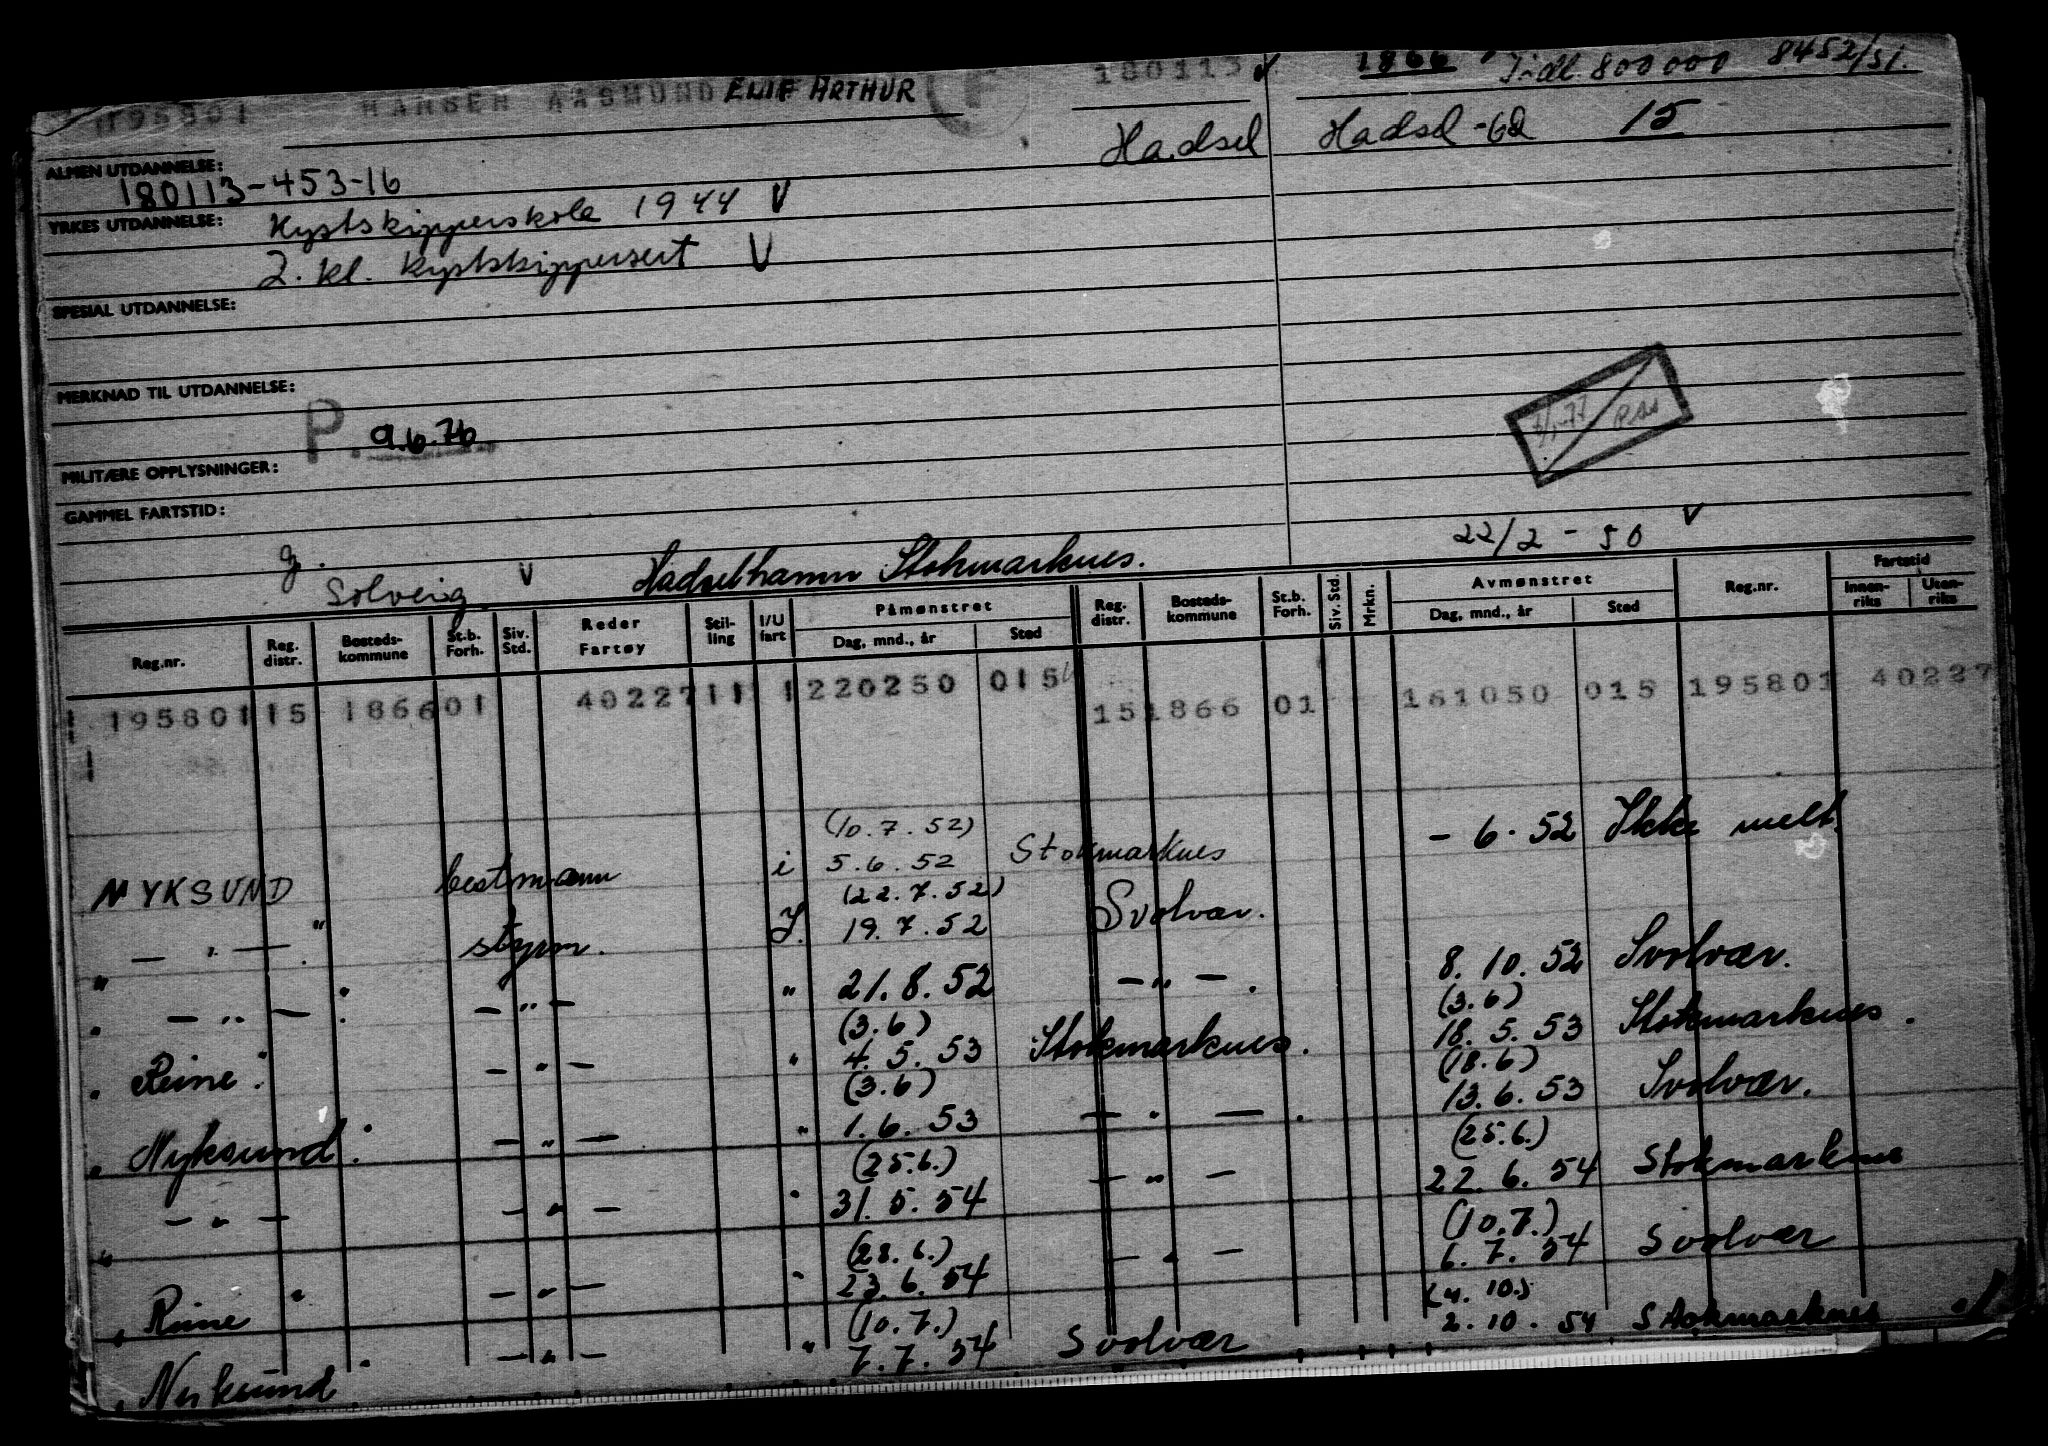 195801 HANSEN AASMUND ELIF ARTHUR 180113 V 1866 Tidl. 800000 8452/51.
Hadsel Hadsel -62 15
ALMEN UTDANNELSE:
180113-453-16
YRKES UTDANNELSE: Kystskipperskole 1944 V
2. kl. kystskippersert V
SPESIAL UTDANNELSE:
MERKNAD TIL UTDANNELSE:
P. 9.6.76
MILITÆRE OPPLYSNINGER:
GAMMEL FARTSTID:
g. Solveig V Hadselhamn Stokmarknes. 22/2 - 50 V
Reg.nr. Reg. distr. Bosteds-kommune St.b. Forh. Siv. Std. Reder Fartøy Stil-ling I/U fart Påmønstret Dag, mnd., år Sted Reg. distr. Bosteds-kommune St.b. Forh. Siv. Std. Mrkn. Avmønstret Dag, mnd., år Sted Reg.nr. Fartstid Innen-riks Uten-riks
195801 15 1866 01 40227 11 1 220250 015 15 1866 01 161050 015 195801 40227
(10.7.52)
NYKSUND bestmann i 5.6.52 Stokmarknes - 6.52 Ikke melt.
(22.7.52)
" — " — " styrm. I. 19.7.52 Svolvær.
" — " — " — " — " 21.8.52 — " — . 8.10.52 Svolvær.
(3.6) (3.6)
" Reine " — " — " 4.5.53 Stokmarknes. 18.5.53 Stokmarknes.
(3.6) (18.6)
" Nyksund " — " — " 1.6.53 — " — . 13.6.53 Svolvær.
(25.6.) (25.6.)
" — " — — " — " 31.5.54 — " — 22.6.54 Stokmarknes
(28.6.) (10.7.)
" Reine " — " — " 23.6.54 — " — 6.7.54 Svolvær
(10.7.) (4.10.)
" Nyksund " — " — " 7.7.54 Svolvær 2.10.54 Stokmarknes